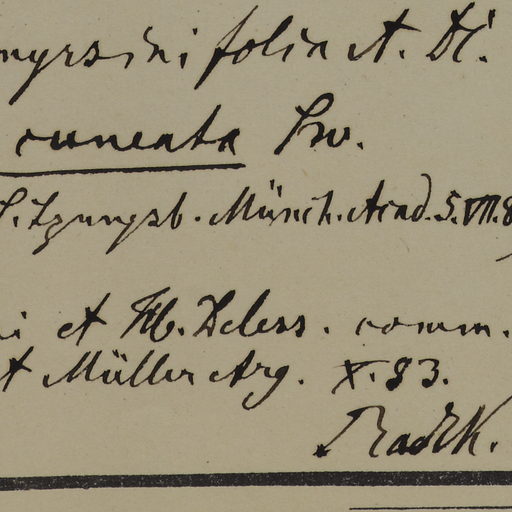 myrsinifolia A. DC.
cuneata Sw.
Sitzungsb. Münch. Acad. 5. VII. 8
et Hb. Deless. comm.
Müller Arg. X. 83.
Radlk.